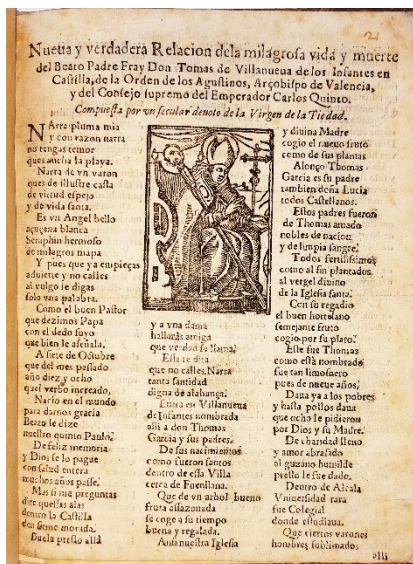 21
Nueua y verdadera Relacion dela milagrosa vida y muerte
del Beato Padre Fray Don Tomas de Villanueua de los Infantes en
Castilla, de la Orden de los Agustinos, Arçobispo de Valencia,
y del Consejo supremo del Emperador Carlos Quinto.
Compuesta por un secular deuoto de la Virgen de la Piedad.
NArra pluma mia
y con razon narra
no tengas temor
ques ancha la playa.
Narra de vn varon
ques de illustre casta
de virtud espejo
y de vida santa.
Es vn Angel bello
açucena blanca
Seraphin hermoso
de milagros mapa
Y pues que ya empieças
aduierte y no calles
al vulgo le digas
sola vna palabra.
Como el buen Pastor
que dezimos Papa
con el dedo suyo
que bien le asenala.
A siete de Octubre
que del mes passado
año diez y ocho
quel verbo increado,
Nacio en el mundo
para darnos gracia
Beato le dize
nuestro quinto Paulo.
De feliz memoria
y Dios se lo pague
con salud entera
muchos años passe.
Mas si me preguntas
dire quessas alas
dentro la Castilla
don tiene morada.
Buela presto allà
y a vna dama
hallaràs amiga
que verdad se llama.
Esta te dira
que no calles, Narra
tanta santidad
digna de alabança.
Entra en Villanueua
de Infantes nombrada
alli a don Thomas
Garcia y sus padres.
De sus nacimientos
como fueron santos
dentro de esta Villa
cerca de Fuenllana.
Que de vn arbol bueno
fruta assazonada
se coge a su tiempo
buena y regalada.
Ansi nuestra Iglesia
y diuina Madre
cogio el nueuo fruto
como de sus plantas
Alonço Thomas
Garcia es su padre
tambien deña Lucia
todos Castellanos.
Estos padres fueron
de Thomas amado
nobles de nacion
y de limpia sangre.
Todos fertilissimos
como al fin plantados
al vergel diuino
de la Iglesia santa.
Con su regadio
el buen hortolano
semejante fruto
cogio por su plato.
Este fue Thomas
como està nombrado
fue tan limosnero
pues de nueue años,
Daua ya a los pobres
y hasta pollos daua
que ocho le pidieron
por Dios y su Madre.
De charidad lleno
y amor abrasado
al gusano humilde
presto le fue dado.
Dentro de Alcala
Vniuersidad rara
fue Colegial
donde estudiaua.
Que ciertos varones
hombres sublimados